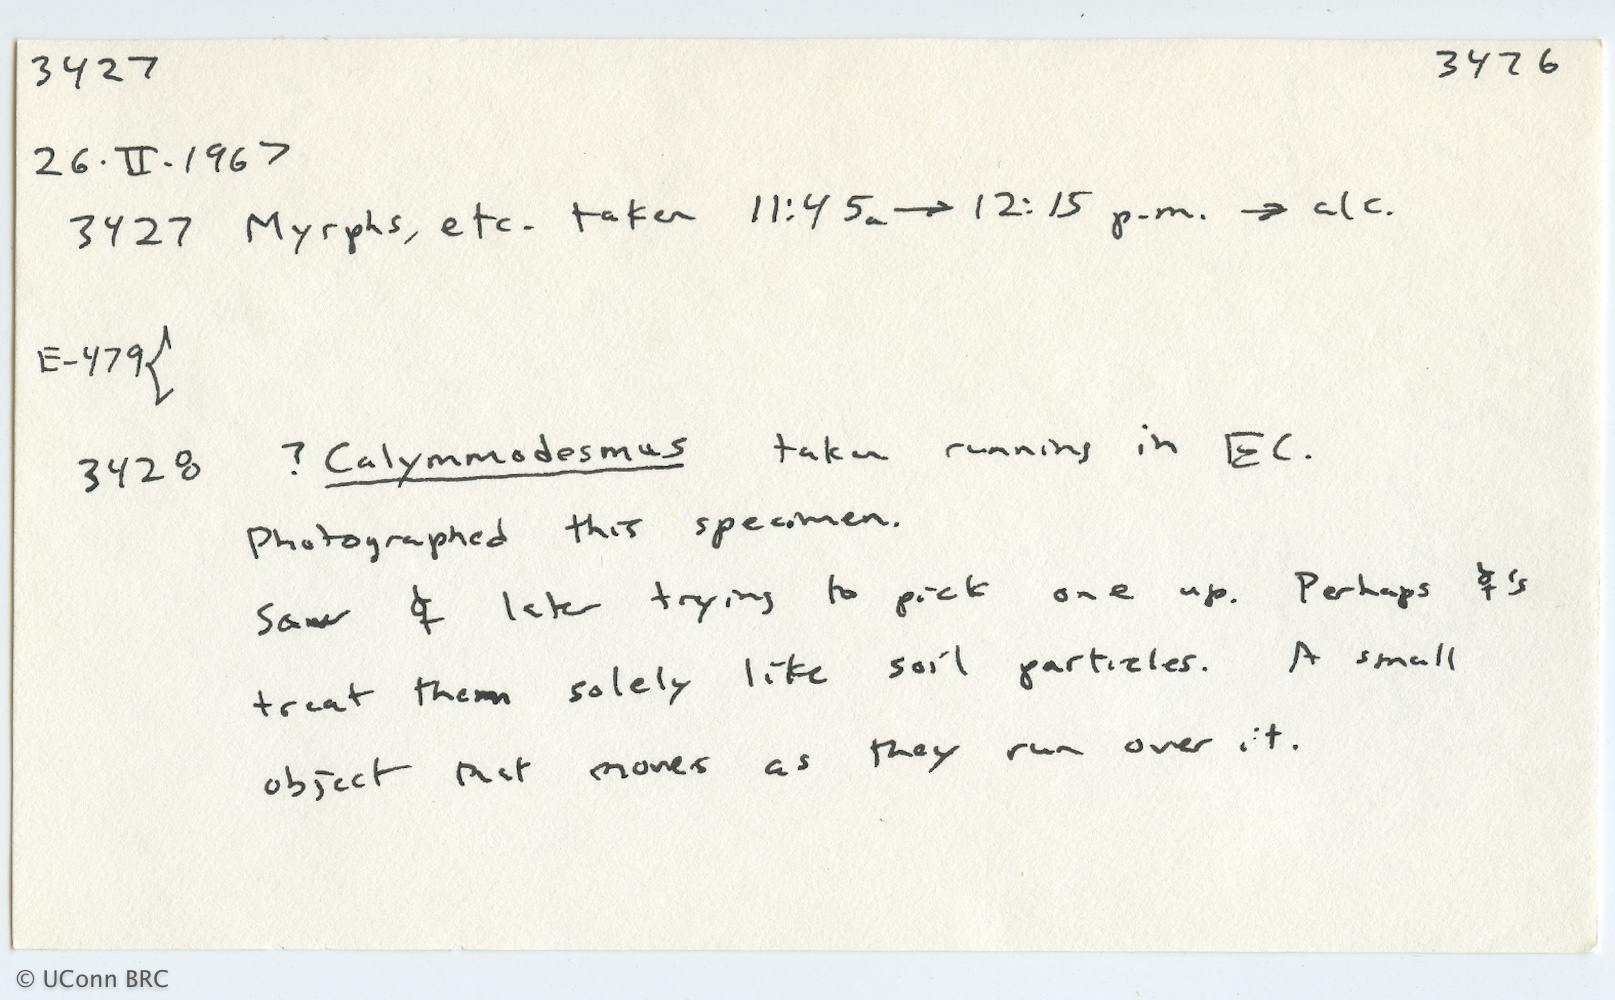 3427 3426
26·II·1967
3427 Myrphs, etc. taken 11:45a → 12:15 p.m. → alc.
E-479{
3428 ? Calymmodesmus taken running in EC.
Photographed this specimen.
Saw ☿ later trying to pick one up. Perhaps ☿'s
treat them solely like soil particles. A small
object that moves as they run over it.
© UConn BRC